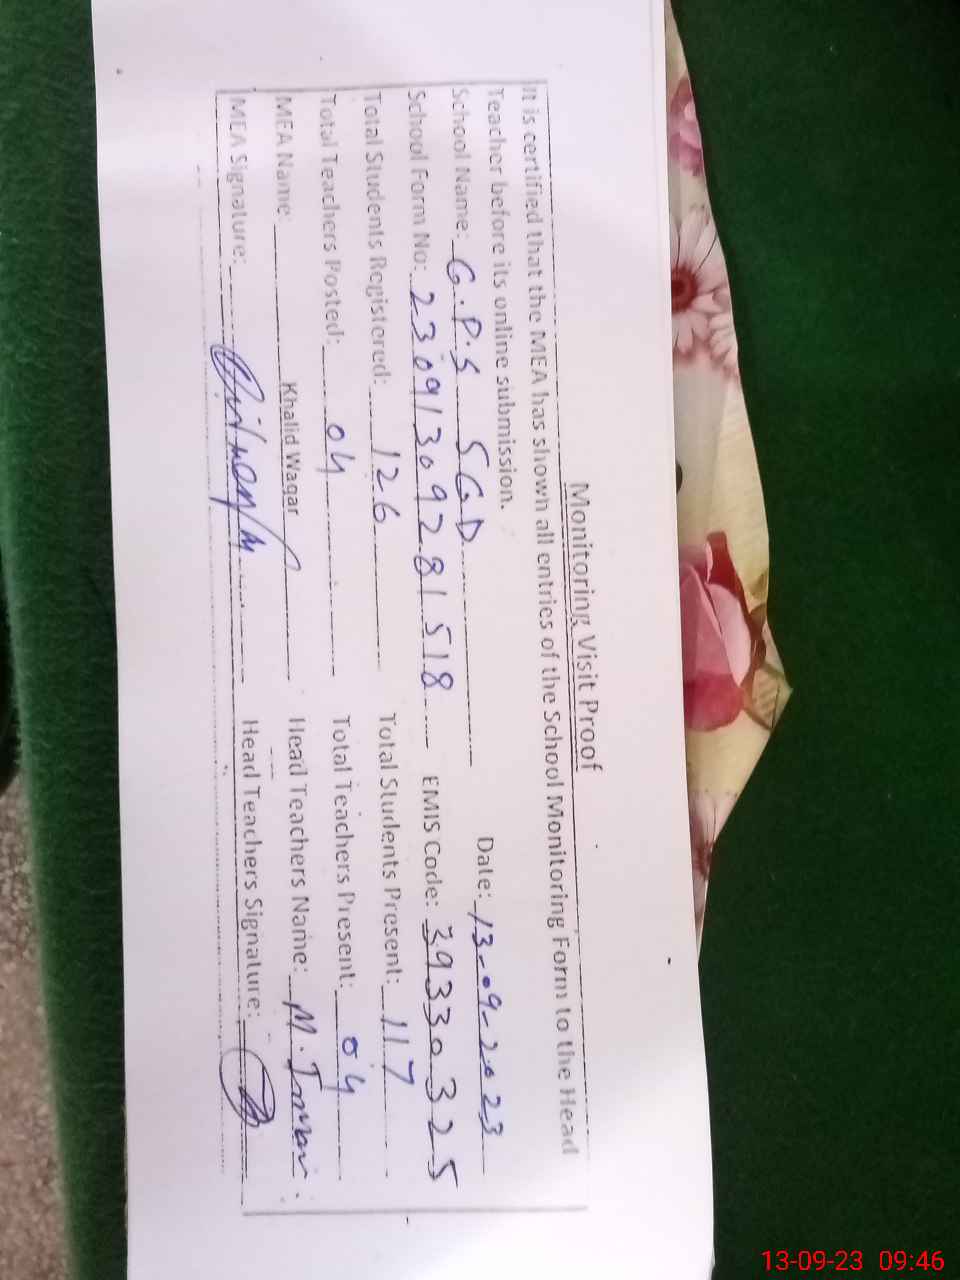 Monitoring Visit Proof
It is certified that the MEA has shown all entries of the School Monitoring Form to the Head
Teacher before its online submission.
School Name: G.P.S SGD Date: 13-09-2023
School Form No: 23091309281518 EMIS Code: 39330325
Total Students Registered: 126 Total Students Present: 117
Total Teachers Posted: 04 Total Teachers Present: 04
MEA Name: Khalid Waqar Head Teachers Name: M.
MEA Signature: Head Teachers Signature:
13-09-23 09:46